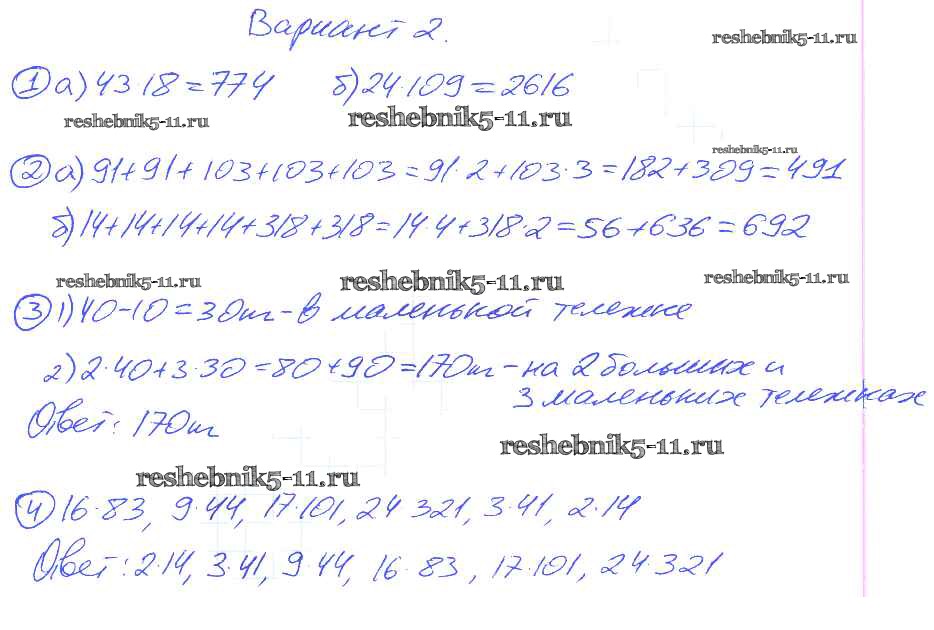 Вариант 2.
reshebnik5-11.ru
① а) 43·18=774 б) 24·109=2616
reshebnik5-11.ru reshebnik5-11.ru
reshebnik5-11.ru
② а) 91+91+103+103+103=91·2+103·3=182+309=491
б) 14+14+14+14+318+318=14·4+318·2=56+636=692
reshebnik5-11.ru reshebnik5-11.ru reshebnik5-11.ru
③ 1) 40-10=30кг-в маленькой тележке
2) 2·40+3·30=80+90=170кг-на 2 больших и
3 маленьких тележках
Ответ: 170кг
reshebnik5-11.ru
reshebnik5-11.ru
④ 16·83, 9·44, 17·101, 24·321, 3·41, 2·14
Ответ: 2·14, 3·41, 9·44, 16·83, 17·101, 24·321